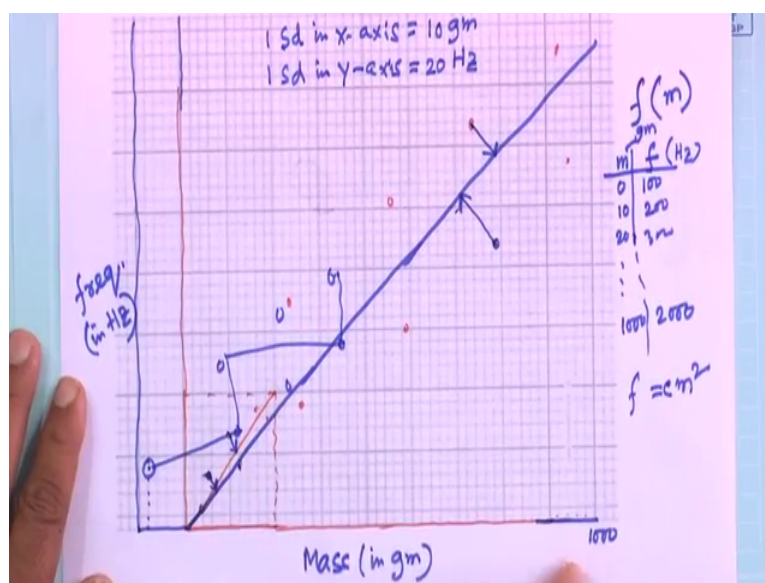 1 sd in x-axis = 10 gm
1 sd in y-axis = 20 Hz
f(m)
gm
m f (Hz)
0 100
10 200
20 300
1000 2000
f = cm²
freq.
(in Hz)
1000
Mass (in gm)